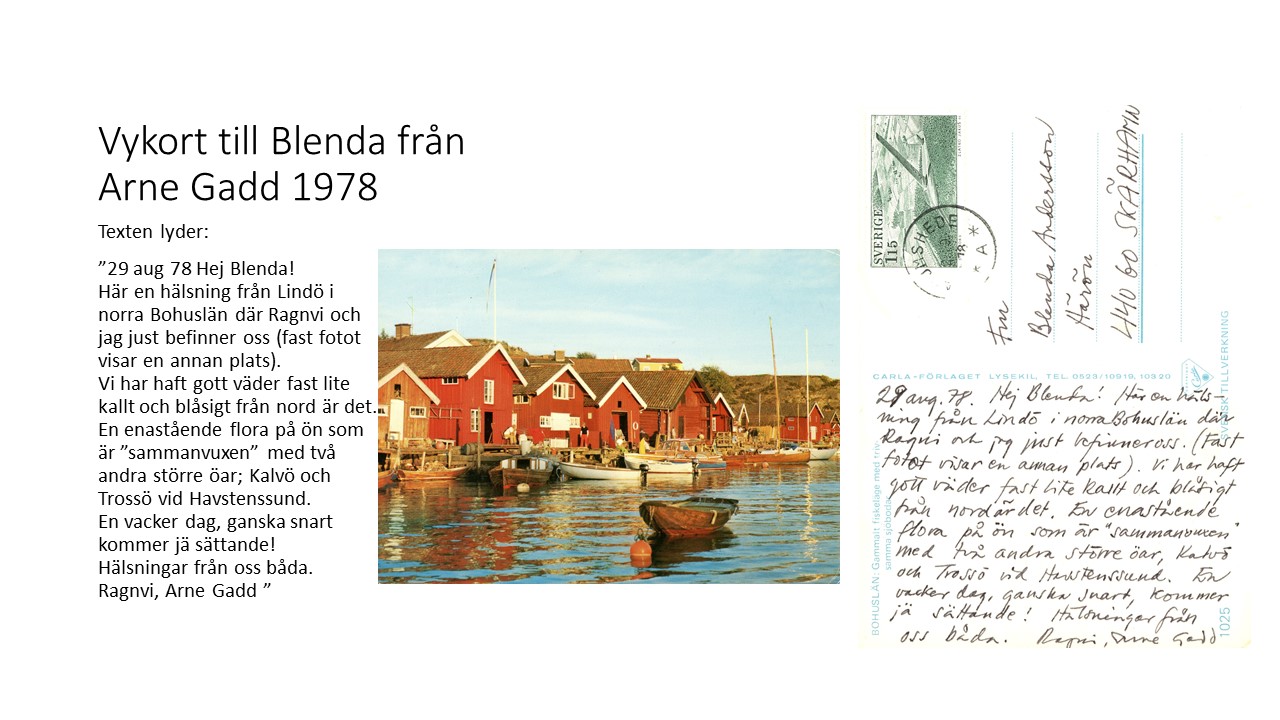 Vykort till Blenda från
Arne Gadd 1978
Texten lyder:
”29 aug 78 Hej Blenda!
Här en hälsning från Lindö i
norra Bohuslän där Ragnvi och
jag just befinner oss (fast fotot
visar en annan plats).
Vi har haft gott väder fast lite
kallt och blåsigt från nord är det.
En enastående flora på ön som
är ”sammanvuxen” med två
andra större öar; Kalvö och
Trossö vid Havstenssund.
En vacker dag, ganska snart
kommer jä sättande!
Hälsningar från oss båda.
Ragnvi, Arne Gadd ”
SVERIGE
115
Fru
Blenda Andersson
Härön
440 60 SKÄRHAMN
CARLA-FÖRLAGET LYSEKIL, TEL. 0523/10919, 103 20
SVENSK TILLVERKNING
29 aug. 78. Hej Blenda! Här en häls-
ning från Lindö i norra Bohuslän där
Ragnvi och jag just befinner oss. (Fast
fotot visar en annan plats). Vi har haft
gott väder fast lite kallt och blåsigt
från nord är det. En enastående
flora på ön som är "sammanvuxen"
med två andra större öar, Kalvö
och Trossö vid Havstenssund. En
vacker dag, ganska snart, kommer
jä sättande! Hälsningar från
oss båda. Ragnvi, Arne Gadd
BOHUSLÄN: Gammalt fiskeläge med triv-
samma sjöbodar
1025